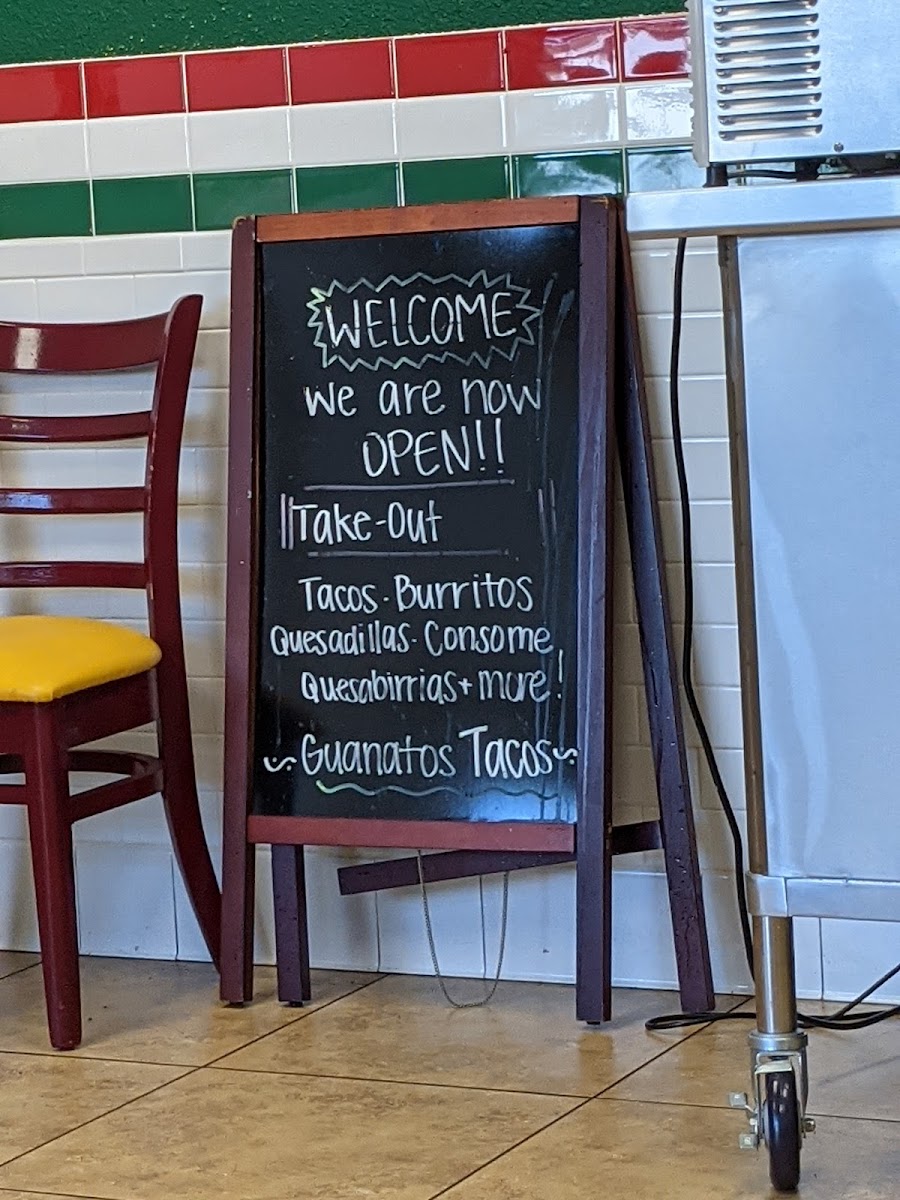 WELCOME
We are now
OPEN!!
Take-Out
Tacos - Burritos
Quesadillas - Consome
Quesabirrias + more!
~ Guanatos Tacos ~